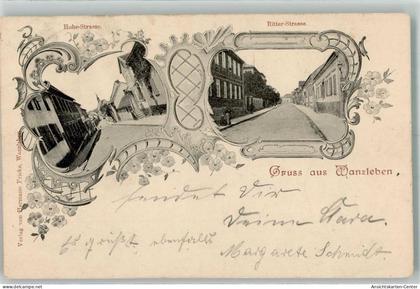 Hohe-Strasse.
Ritter-Strasse.
Verlag von Hermann Fricke, Wanzleben.
Gruss aus Wanzleben,
sendet Dir
Deine Clara.
Es grüßt ebenfalls
Margarete Schmidt.
Ansichtskarten-Center